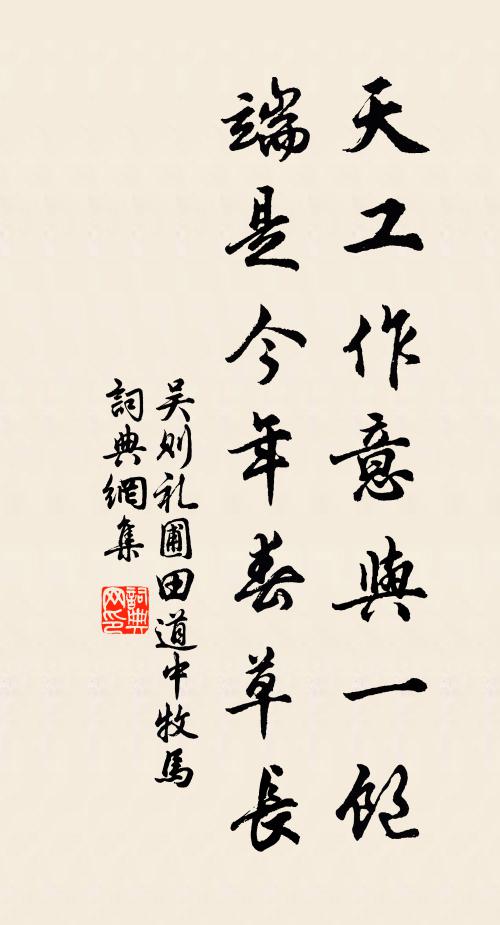 天工作意與一飽
端是今年春草長
吳則礼圃田道中牧馬
詞典網集
詞典网印